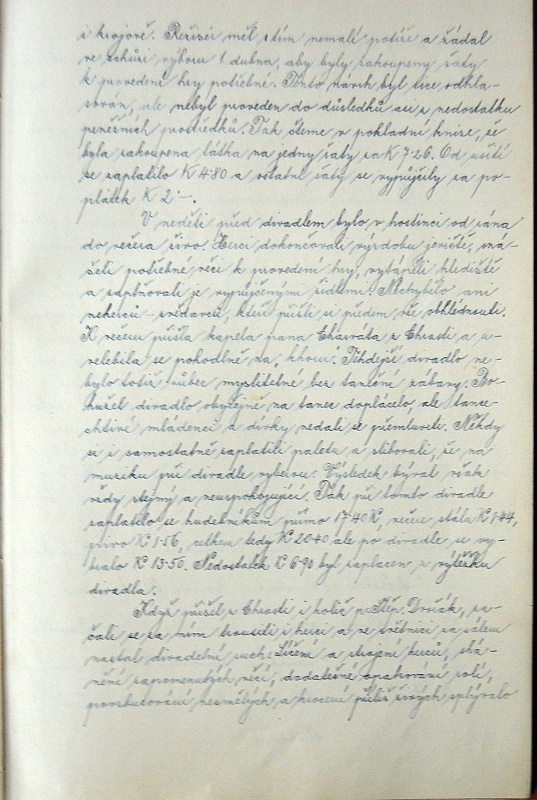 i krojově. Režiséi měl s tím nemalé potíže a žádal
ve schůzi výboru 1. dubna, aby byly zakoupeny šaty
k provedení hry potřebné. Tento návrh byl sice odhla-
sován, ale nebyl proveden do důsledků asi z nedostatku
peněžních prostředků. Tak čteme v pokladní knize, že
byla zakoupena látka na jedny šaty za K 7·26. Od ušití
se zaplatilo K 4·80 a ostatní šaty se vypůjčily za po-
platek K 2·-.
V neděli před divadlem bylo v hostinci od rána
do večera živo. Herci dokončovali výzdobu jeviště, sná-
šeli potřebné věci k provedení hry, vytápěli hlediště
a zaplňovali je vypůjčenými židlemi. Nechybělo ani
neherců - zvědavců, kteří přišli si předem vše obhlédnouti.
K večeru přišla kapela pana Chavráta z Chrasti a u-
velebila se pohodlně za „khoni". Tehdejší divadlo ne-
bylo totiž vůbec myslitelné bez taneční zábavy. Bo-
hužel divadlo obyčejně na tanec doplácelo, ale tance-
chtiví mládenci a dívky nedali se přemluviti. Někdy
si i samostatně zaplatili paletu a slibovali, že na
muziku při divadle vyberou. Výsledek býval však
vždy stejný a neuspokojující. Tak při tomto divadle
zaplatilo se hudebníkům přímo 17·40 K, večeře stála K 1·44,
pivo K 1·56, celkem tedy K 20·40 ale po divadle se vy-
bralo K 13·50. Nedostatek K 6·90 byl zaplacen z výtěžku
divadla.
Když přišel z Chrasti i holič p. Štěp. Dvořák, za-
čali se za ním trousiti i herci a ve světnici za sálem
nastal divadelní ruch. Líčení a strojení herců, shá-
nění zapomenutých věcí, dodatečné opakování rolí,
povzbuzování nesmělých a krocení příliš živých splývalo